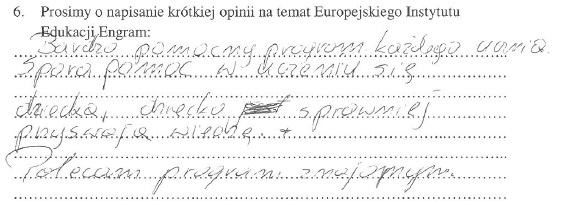 6. Prosimy o napisanie krótkiej opinii na temat Europejskiego Instytutu
Edukacji Engram:
Bardzo pomocny program każdego ucznia.
Spora pomoc w uczeniu się
dziecka, dziecko sprawniej
przyswaja wiedzę. +
Polecam program znajomym.